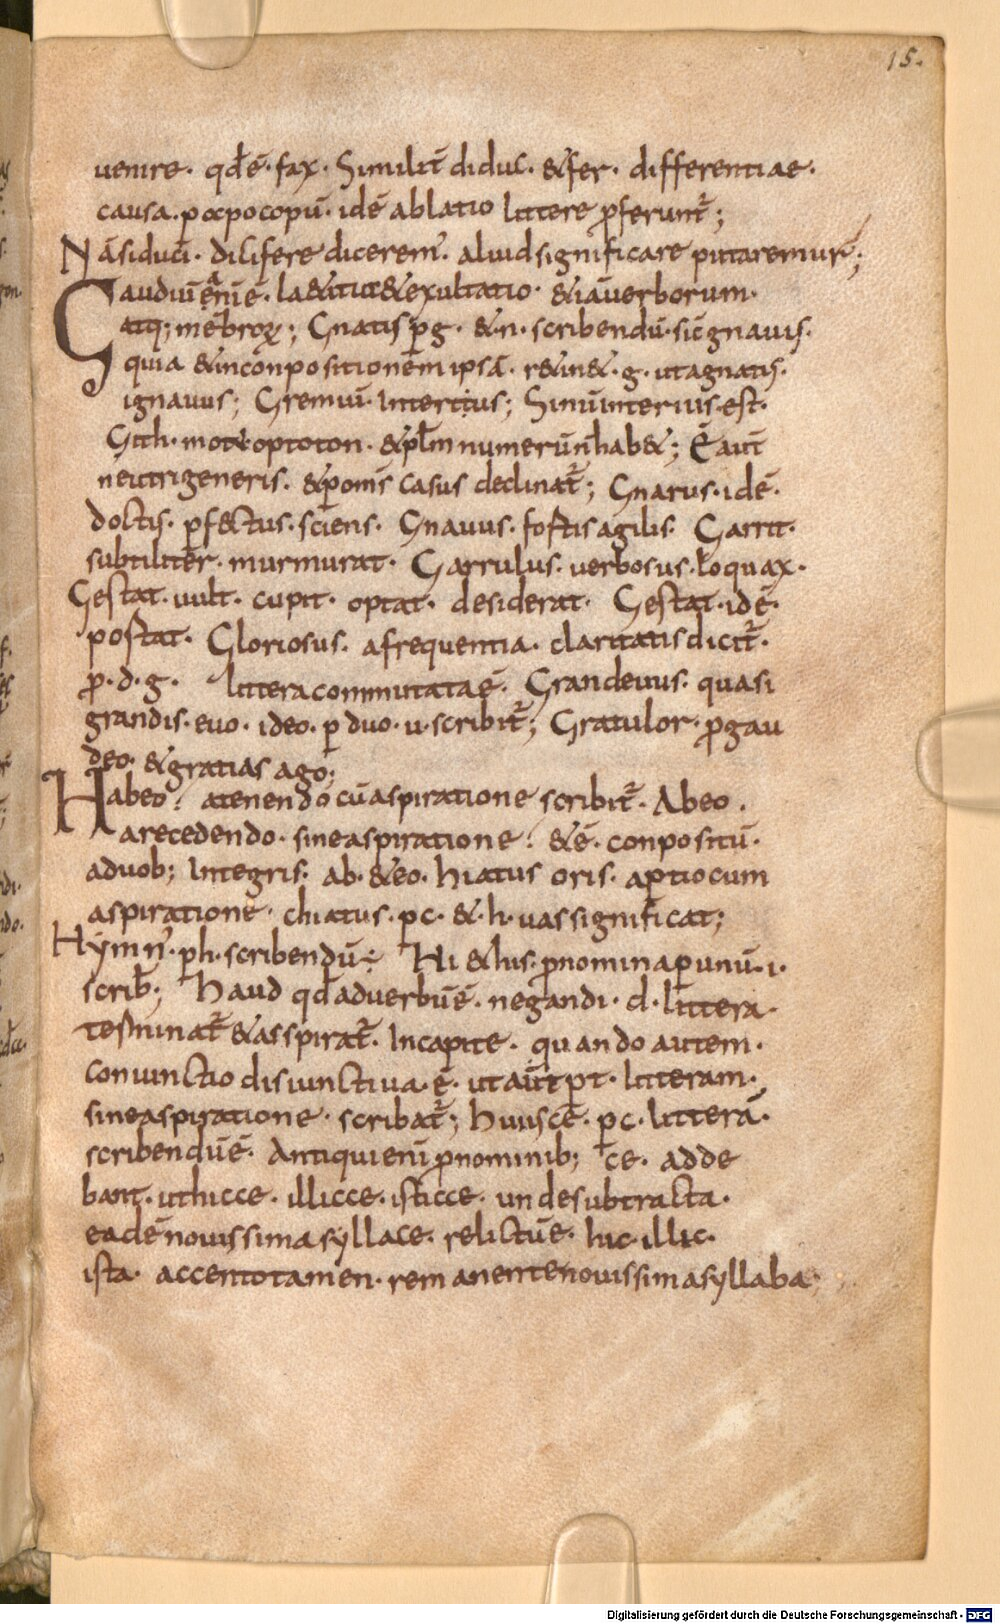 15.
uenire. qđē. fax. Similit̄ diduc. &fer. differentiae.
causa. p ocpocopū. idē ablatio littere p̄ferunt̄;
Nā si duci. dilifere dicerem̄. aliud significare putaremur;
Gaudiū ē animę. la&itia & exultatio. & iā uerborum.
atq; mēbroꝝ; Gnatis p̄ g. & n. scribendū. sic gnauis.
quia & in conpositionem ipsā. r&in&. g. ut agnatis.
ignauus; Gremiū. Interitus; Sinū interius. est.
Gith. moteoptoton. & plm̄ numerū n̄ hab&; Ē aut̄
neutri generis. & p om̄s casus declinat̄; Gnarus. idē.
doctis. p̄f&ctus. sciens. Gnauus. fortis agilis. Garrit.
subtiliter. murmurat. Garrulus. uerbosus. loquax.
Gestat. uult. cupit. optat. desiderat. Gestat. idē.
postat. Gloriosus. a frequentia. claritatis dicit̄.
p̄. d. g. littera commutata ē. Grandeuus. quasi
grandis. euo. ideo. p duo. u. scribit̄; Gratulor. p̄ gau
deo. & gratias ago;
Habeo. a tenendo cū aspiratione scribit̄. Abeo.
a recedendo. sine aspiratione. & ē. conpositū.
a duob; Integris. ab. & eo. hiatus oris. aptio cum
aspiratione. chiatus. p c. & h. uas significat;
Hymn̄. p h. scribendū; Hi & his. p̄nomina p unū. i.
scrib̄; Haud qđ aduerbiū ē. negandi. d. littera.
terminat̄ & asspirat̄. In capite. quando autem.
coniunctio disiunctiua. ē. ut aut p t. litteram.
sine aspiratione. scribat̄; huisce. p c. litterā.
scribendū ē. Antiqui eni p̄nominib; ce. adde
bant. ut hicce. illicce. isticce. unde subtracta.
eadē nouissima syllace. relictū ē. hic. illic.
ista. accento tamen. remanente nouissima syllaba.
Digitalisierung gefördert durch die Deutsche Forschungsgemeinschaft - DFG